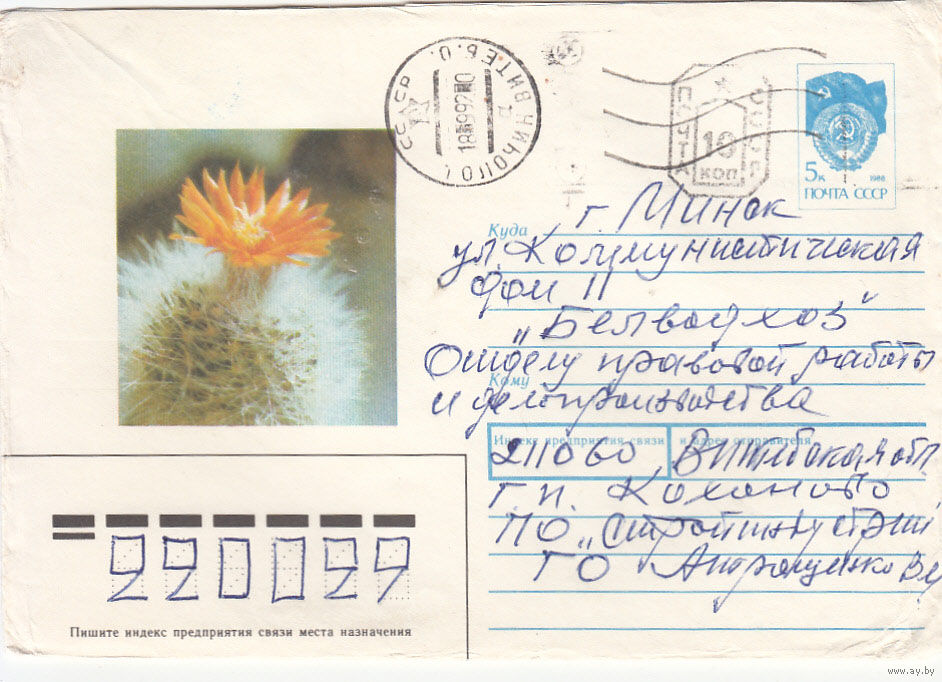 СССР
18 9 92 10
ПОЧТА
СССР
10
КОП
5к
1988
ПОЧТА СССР
Куда
г. Минск
ул. Коммунистическая
дом 11
„Белводхоз"
Отделу правовой работы
Кому
и делопроизводства
Индекс предприятия связи и адрес отправителя
211060, Витебская обл
г.п. Коханово
ПО „Строй
ГО
220029
Пишите индекс предприятия связи места назначения
www.ay.by